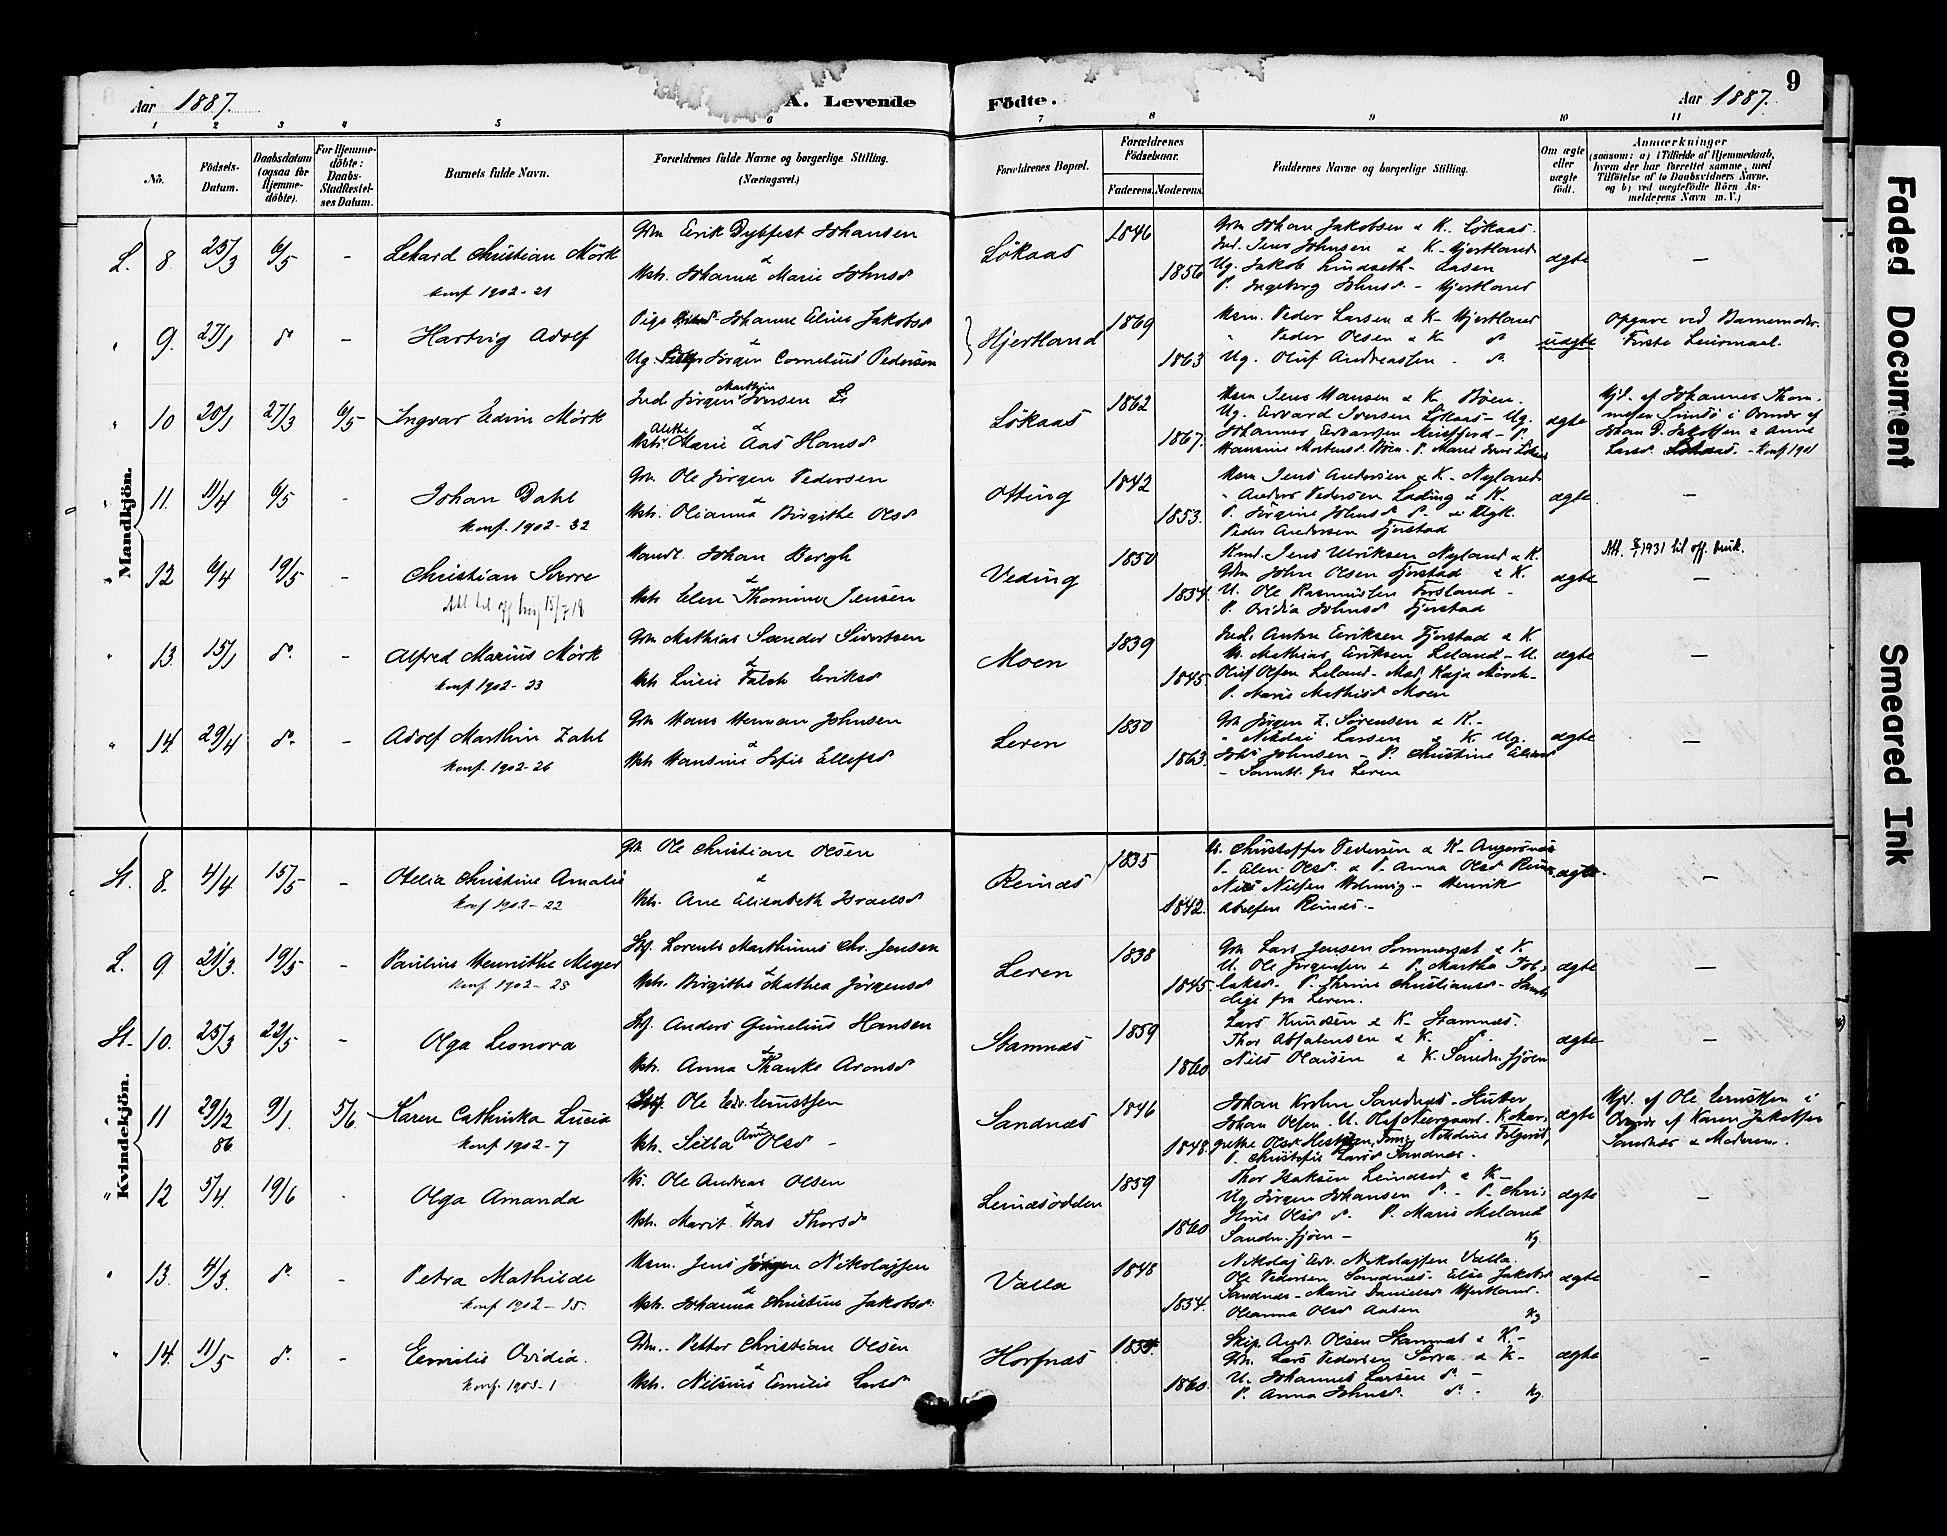 Aar 1887.
A. Levende
Födte.
Aar 1887.
9
1 2 3 4 5 6 7 8 9 10 11
No.
Födsels-Datum.
Daabsdatum (ogsaa for Hjemme-döbte).
For Hjemme-döbte: Daabs-Stadfæstel-ses Datum.
Barnets fulde Navn.
Forældrenes fulde Navne og borgerlige Stilling. (Næringsvei.)
Forældrenes Bopæl.
Forældrenes Födselsaar.
Faderens. Moderens.
Faddernes Navne og borgerlige Stilling.
Om ægte eller uægte födt.
Anmærkninger
(saasom: a) i Tilfælde af Hjemmedaab,
hvem der har forrettet samme, med
Tilföielse af to Daabsvidners Navne.
og b) ved uægtefödte Börn An-
melderens Navn m. V.)
Mandkjön.
L. 8. 25/3 6/5 - Lekard Christian Mörk
konf 1902-21
Gm Erik Dybfest Johansen
&
Kstr. Johanna Marie Johnsd
Lökaas 1846 1856
Gm Johan Jakobsen & K. Lökaas.
Ind. Jens Johnsen & K. Hjertland
Ug. Jakob Lindseth - Aasen
P. Ingeborg Johnsd - Hjertland
ægte -
" 9. 27/1 do - Hartvig Adolf
Pige Johanne Eline Jakobsd
&
Ug. Jörgen Cornelius Pedersen
Hjertland 1869 1863
Husm. Peder Larsen & K. Hjertland
" Peder Olsen & K. do
Ug. Oluf Andreassen - do.
uægte
Opgave ved Barnemoder.
Förste Leiermaal.
" 10 20/1 27/3 6/5 Ingvar Edvin Mörk
Ind. Jörgen Marthin Iversen
&
Kstr. Alethe Marie Aas Hansd
Lökaas 1862 1867.
Husm Jens Hansen & K. Böen.
Ug. Edvard Iversen Lökaas - Ug.
Johannes Edvardsen Meisfjord - P.
Hansine Mortensd. Böen - P. Marie
ægte
Hjd. af Johannes Thom-
mesen Sundö i Overvær af
Johan P. Jakobsen & Anne
Larsd Lökaas. - Konf 1901
" 11. 11/4 6/5 - Johan Dahl
Konf. 1902-32
Gm. Ole Jörgen Pedersen
&
Kstr. Olianna Birgithe Olsd
Ofting 1842 1853.
Husm Jens Andersen & K. Nyland
" Anders Pedersen Lading & K.
P. Jörgine Johnsd
Peder Andersen Fjorstad
ægte -
" 12 6/4 19/5 - Christian Sverre
Att til off brug 15/7 18
Handl. Johan Bergh
&
Kstr Elen Thomine Jensen
Veding 1850 1854.
Kmd. Jens Ulriksen Nyland & K.
Gm John Olsen Fjorstad & K.
U. Ole Rasmussen Forsland -
P. Ovidia Johnsd Fjorstad
ægte
Att. 1931 til off. bruk.
-
" 13. 15/1 do - Alfred Marius Mörk
konf 1902-23
Gm Mathias Sander Sivertsen
&
Kstr Lucie Falch Eriksd
Moen 1839 1845
Ind. Anton Eriksen Fjorstad & K
U. Mathias Eriksen Leland - U.
Oluf Olsen Leland - Mad. Kaja Mörch -
P. Marie Mathisd Moen
ægte -
" 14 29/4 do - Adolf Marthin Zahl
konf. 1902-26
Gm Hans Herman Johnsen
&
Kstr Hansine Sofie Ellefsd
Leren 1850 1863.
Gm Jörgen Z. Sörensen & K. -
" Nikolai Larsen & K. Ug.
Johs Johnsen - P. Christine
- Samtl. fra Leren
ægte -
Kvindekjön.
St. 8. 4/4 15/5 - Otelia Christine Amalie
konf 1902-22
Gm Ole Christian Olsen
&
Kstr. Ane Elisabeth Israelsd
Reinæs 1835 1842.
U. Christoffer Pedersen & K.
P. Elen Olsd. & P. Anna Olsd
Nils Nilsen Holmvig - Henrik
Reinæs -
ægte. -
L. 9 21/3. 19/5 - Pauline Henrikke Meyer
konf 1902-28
Stf. Lorents Marthinus Chr. Jensen
&
Kstr. Birgithe Mathea Jörgensd
Leren 1838 1845
Gm Lars Jensen Sommerset & K.
U. Ole Jörgensen & P. Martha
P. Thrine Christiansd - Samt-
lige fra Leren.
ægte -
St. 10. 25/3 22/5 - Olga Leonora
Stf. Anders Gunelius Hansen
&
Kstr. Anna Thanke Aronsd
Stamnæs 1859 1860
Lars Knudsen & K. Stamnæs.
Thor Absalonsen & K. do.
Nils Olaisen & K. Sandn.sjöen
ægte -
" 11 29/12 86 9/1. 5/6 Karen Cathinka Lucia
konf 1902-7
Ole Edv. Ernstsen
&
Kstr. Sella Anne Olsd -
Sandnæs 1846 1848.
Johan Krohn Sandnæs -
Johan Olsen. U. Olaf Neergaard.
P. Christofie Larsd Sandnæs.
ægte
Hjd. af Ole Ernstsen i
Overvær af Karen Jakobsen
Sandnæs & Moderen.
" 12 5/4. 19/6 - Olga Amanda
Ole Andreas Olsen
&
Kstr. Marit Aas Thorsd
Leinesodden 1859 1860
Thor Isaksen Leinesod & K -
Ug Jörgen Johansen do. - P. Chris-
tine Olsd do. P. Marie Meland
Sandn.sjöen - Kg.
ægte -
" 13. 4/3 do. - Petra Mathilde
konf 1902-15.
Husm. Jens Jörgen Nikolajsen
&
Kstr. Johanna Christine Jakobsd.
Valla 1848 1854.
Nikolaj Edv. Nikolajsen Valla.
Ole Pedersen Sandnæs. Else Jakobsd
Sandnæs - Marie Danielsd Hjertland.
Oleanna Olsd Aasen Kg
ægte -
" 14. 11/5 do. - Emilie Ovidia.
konf. 1903-1
Gm. Petter Christian Olsen
&
Kstr. Nilsine Emilie Larsd
Horfnæs 1854. 1860.
Skip. And. Olsen Stamnæs & K. -
Gm. Lars Pedersen Sörra & K -
U. Johannes Larsen do. -
P. Anna Johnsd. do. - Kg.
ægte -
Faded Document
Smeared Ink